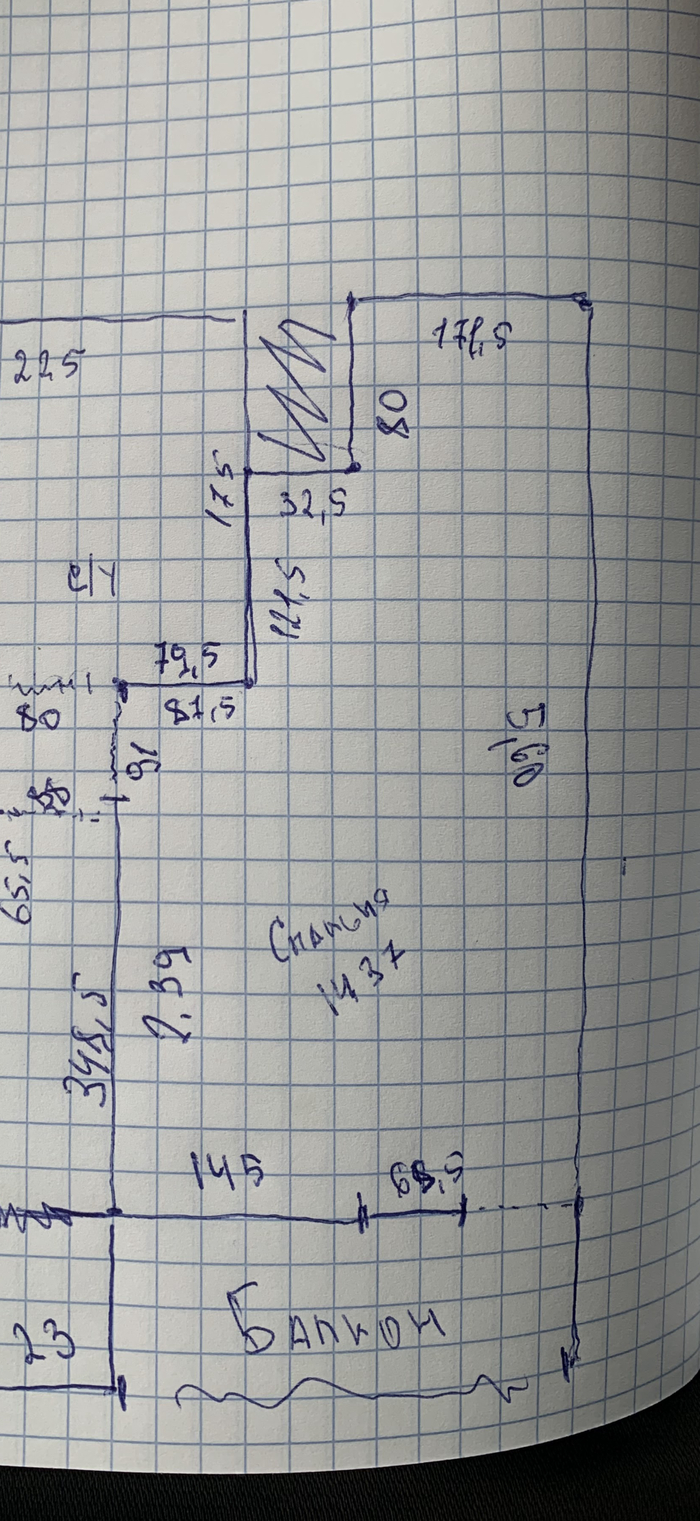 225
171,5
80
175
32,5
с/у
121,5
79,5
87,5
80
91
5,60
65,5
Спальня
1437
2.39
348,5
145
68,5
23
Балкон